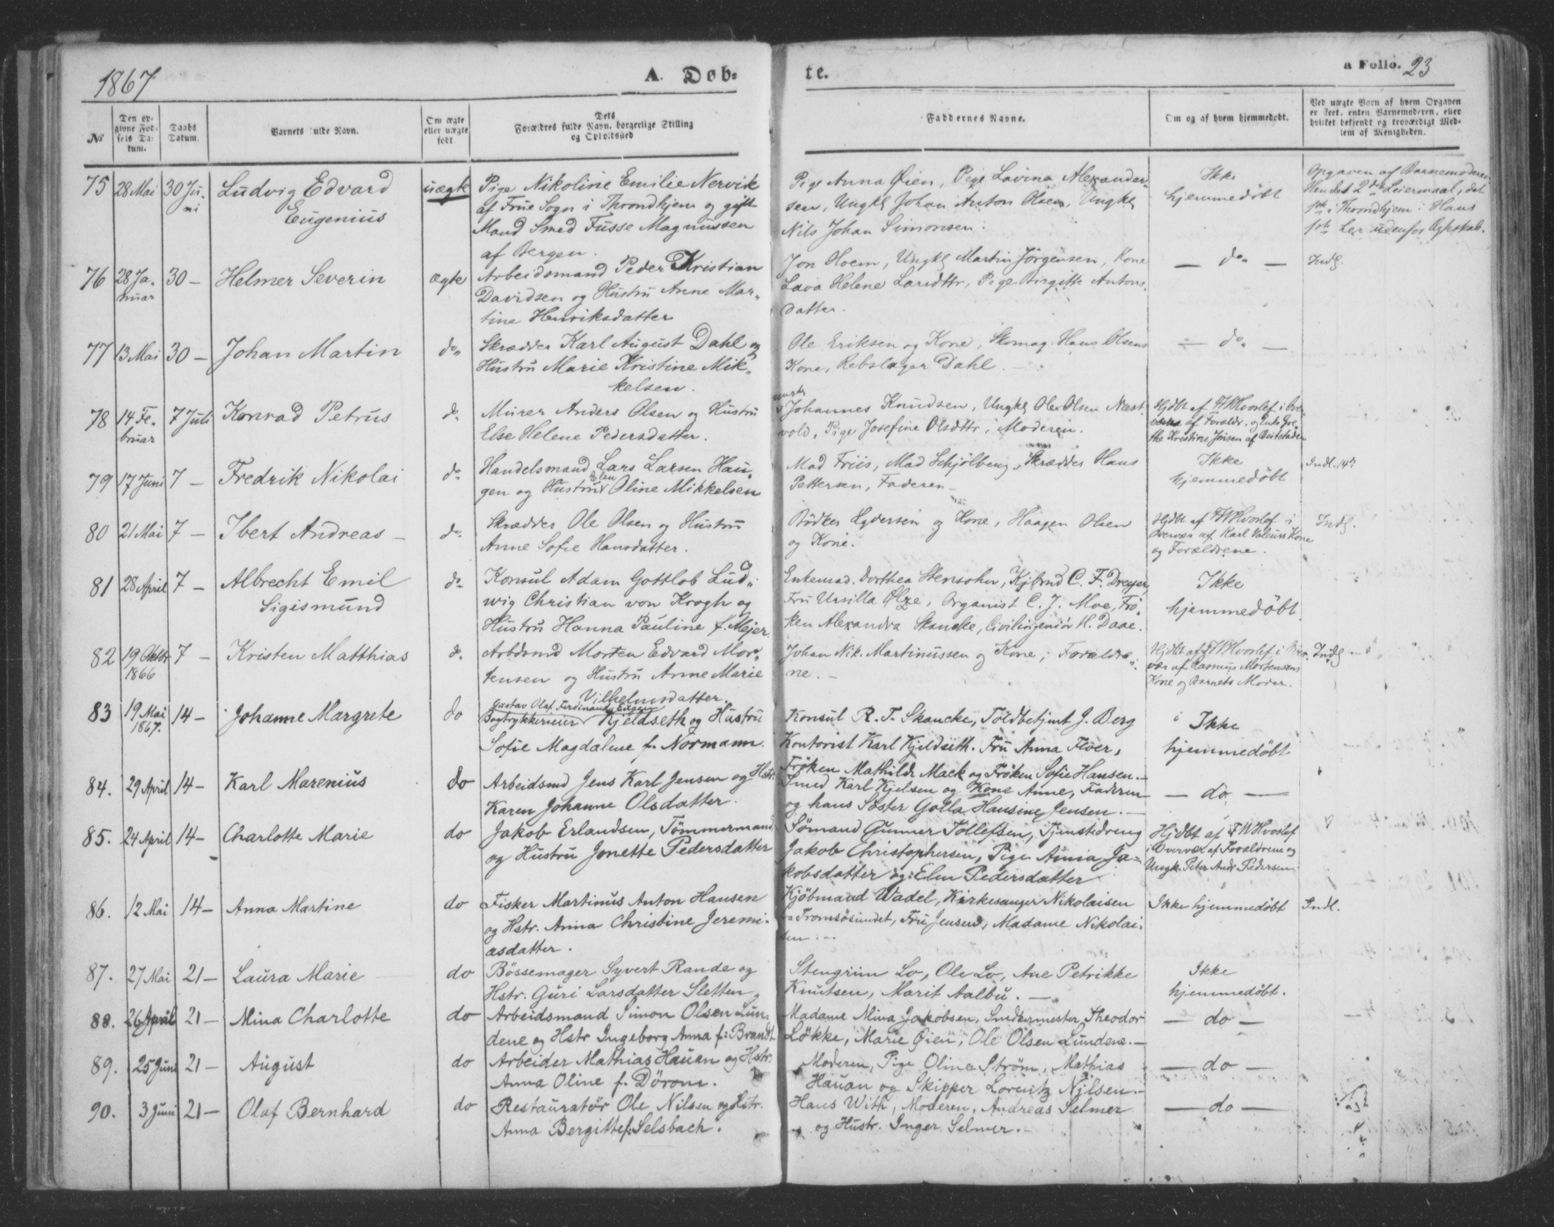 1867 A. Døb- te. a Folio. 23
№ Den opgivne Fødsels Datum. Daabs Datum. Barnets fulde Navn. Om ægte eller uægte født Dets Forældres fulde Navn, borgerlige Stilling og Opholdssted Faddernes Navne. Om og af hvem hjemmedøbt. Ved uægte Børn af hvem Opgaven er skeet, enten Barnemoderen, eller hvilket bekjendt og troværdigt Medlem af Menigheden.
75 28 Mai 30 Juni Ludvig Edvard Eugenius uægte
Pige Nikoline Emilie Nervik
af Frue Sogn i Throndhjem og gift
Mand Smed Fusse Magnussen
af Bergen.
Pige Anna Øien, Pige Lovina Alexander-
sen, Ungkl Johan Anton Olsen, Ungkl
Nils Johan Simonsen.
Ikke
hjemmedøbt
Opgaven af Barnemoderen
Hendes 2det Leiermaal, det
1ste i Throndhjem: Hans
1ste Leier udenfor Ægteskab.
76 28 Januar 30 — Helmer Severin ægte
Arbeidsmand Peder Kristian
Davidsen og Hustru Anne Mar-
tine Henriksdatter
Jon Moem, Ungkl Martin Jörgensen, Kone
Lava Helene Larsdttr, Pige Birgitte Antons-
datter.
— do — Indf.
77 13 Mai 30 — Johan Martin do
Skrædder Karl August Dahl og
Hustru Marie Kristine Mik-
kelsen.
Ole Eriksen og Kone, Skomag. Hans Olsens
Kone, Rebslager Dahl.
— do —
78 14 Februar 7 Juli Konrad Petrus do
Murer Anders Olsen og Hustru
Else Helene Pedersdatter.
Ungkl Johannes Knudsen, Ungkl Ole Olsen Næst-
vold, Pige Josefine Olsdttr, Moderen.
Hjdbt af F W Hvoslef i Over-
værelse af Forældr. og Enke Gre-
the Kristine Jensen af Bustaden
79 17 Juni 7 — Fredrik Nikolai do
Handelsmand Lars Larsen Hau-
gen og Hustru Oline Mikkelsen
Mad Friis, Mad Schjölberg, Skrædder Hans
Pettersen, Faderen —
Ikke
hjemmedøbt
Indl. 147
80 21 Mai 7 — Ibert Andreas — do
Skrædder Ole Olsen og Hustru
Anne Sofie Hansdatter.
Bödker Lydersen og Kone, Haagen Olsen
og Kone.
Hjdbt af F W Hvoslef i
Overvær af Karl Kone
og Forældrene.
Indf.
81 28 April 7 — Albrecht Emil Sigismund do
Konsul Adam Gottlob Lud-
wig Christian von Krogh og
Hustru Hanna Pauline f. Mejer
Enkemad. Dorthea Stensohn, Kjöbmd C. F. Dreyer
Fru Ursilla Ölze, Organist C. J. Moe, Frö-
ken Alexandra Skancke, Civilingeniör H. Daae.
Ikke
hjemmedøbt.
82 19 Oktbr 1866 7 — Kristen Matthias do
Arbdsmd Morten Edvard Mor-
tensen og Hustru Anne Marie
Vilhelmsdatter.
Johan Nik. Martinussen og Kone, Forældre-
ne.
Hjdbt af F W Hvoslef i Over-
vær af Rasmus Mortensens
Kone og Barnets Moder.
Indf
83 19 Mai 1867. 14 — Johanne Margrete do
Gustav Olaf Ferdinand
Bogtrykkereier Kjeldseth og Hustru
Sofie Magdalene f. Normann.
Konsul R. F. Skancke, Toldbetjent J. Berg
Kontorist Karl Kjeldseth. Fru Anna Floer,
Fröken Mathilde Mack og Fröken Sofie Hansen.
Ikke
hjemmedøbt
84. 29 April 14 — Karl Marenius do
Arbeidsmd Jens Karl Jensen og Hstr.
Karen Johanne Olsdatter.
Smed Karl Kjelsen og Kone Anne, Faderen
og hans Søster Golla Hansine Jensen.
— do —
85. 24 April 14 — Charlotte Marie do
Jakob Erlandsen, Tömmermand
og Hustru Jonette Pedersdatter
Sömand Gunner Tollefsen, Tjenestedreng
Jakob Christophersen, Pige Anna Ja-
kobsdatter og Elen Pedersdatter
Hjdbt af F W Hvoslef
i Overvær. af Forældrene og
Ungk. Peter Andr Pedersen
86. 12 Mai 14 — Anna Martine do
Fisker Martinus Anton Hansen
og Hstr. Anna Christine Jeremi-
asdatter.
Kjöbmand Wadel, Kirkesanger Nikolaisen
fra Tromsösundet, Fru Jensen, Madame Nikolai-
sen.
Ikke hjemmedøbt Indl.
87. 27 Mai 21 — Laura Marie do
Bössemager Syvert Rande og
Hstr. Guri Larsdatter Sletten
Stengrim Lo, Ole Lo, Ane Petrikke
Knutsen, Marit Aalbu.
Ikke
hjemmedøbt.
88. 26 April 21 — Mina Charlotte do
Arbeidsmand Simon Olsen Lun-
dene og Hstr Ingeborg Anna f. Brandt
Madame Mina Jakobsen, Snedkermester Theodor
Løkke, Marie Øien, Ole Olsen Lundene.
— do —
89. 25 Juni 21 — August do
Arbeider Mathias Hauan og Hstr
Anna Oline f. Dörom.
Moderen, Pige Oline Ström, Mathias
Hauan og Skipper Lorentz Nilsen
— do —
90. 3 Juni 21 — Olaf Bernhard do
Restauratör Ole Nilsen og Hstr.
Anna Bergitte f. Selsbach.
Hans With, Moderen, Andreas Selmer
og Hustr. Inger Selmer.
— do —